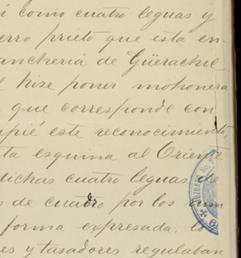 í como cuatro leguas y
erro prieto que esta en-
anchería de Güérachic
hise poner mohonera
que corresponde con
apié este reconocimiento,
ta esquina al Oriente
dichas cuatro leguas de
s de cuadro por los
forma expresada.
es y tasadores regulaban